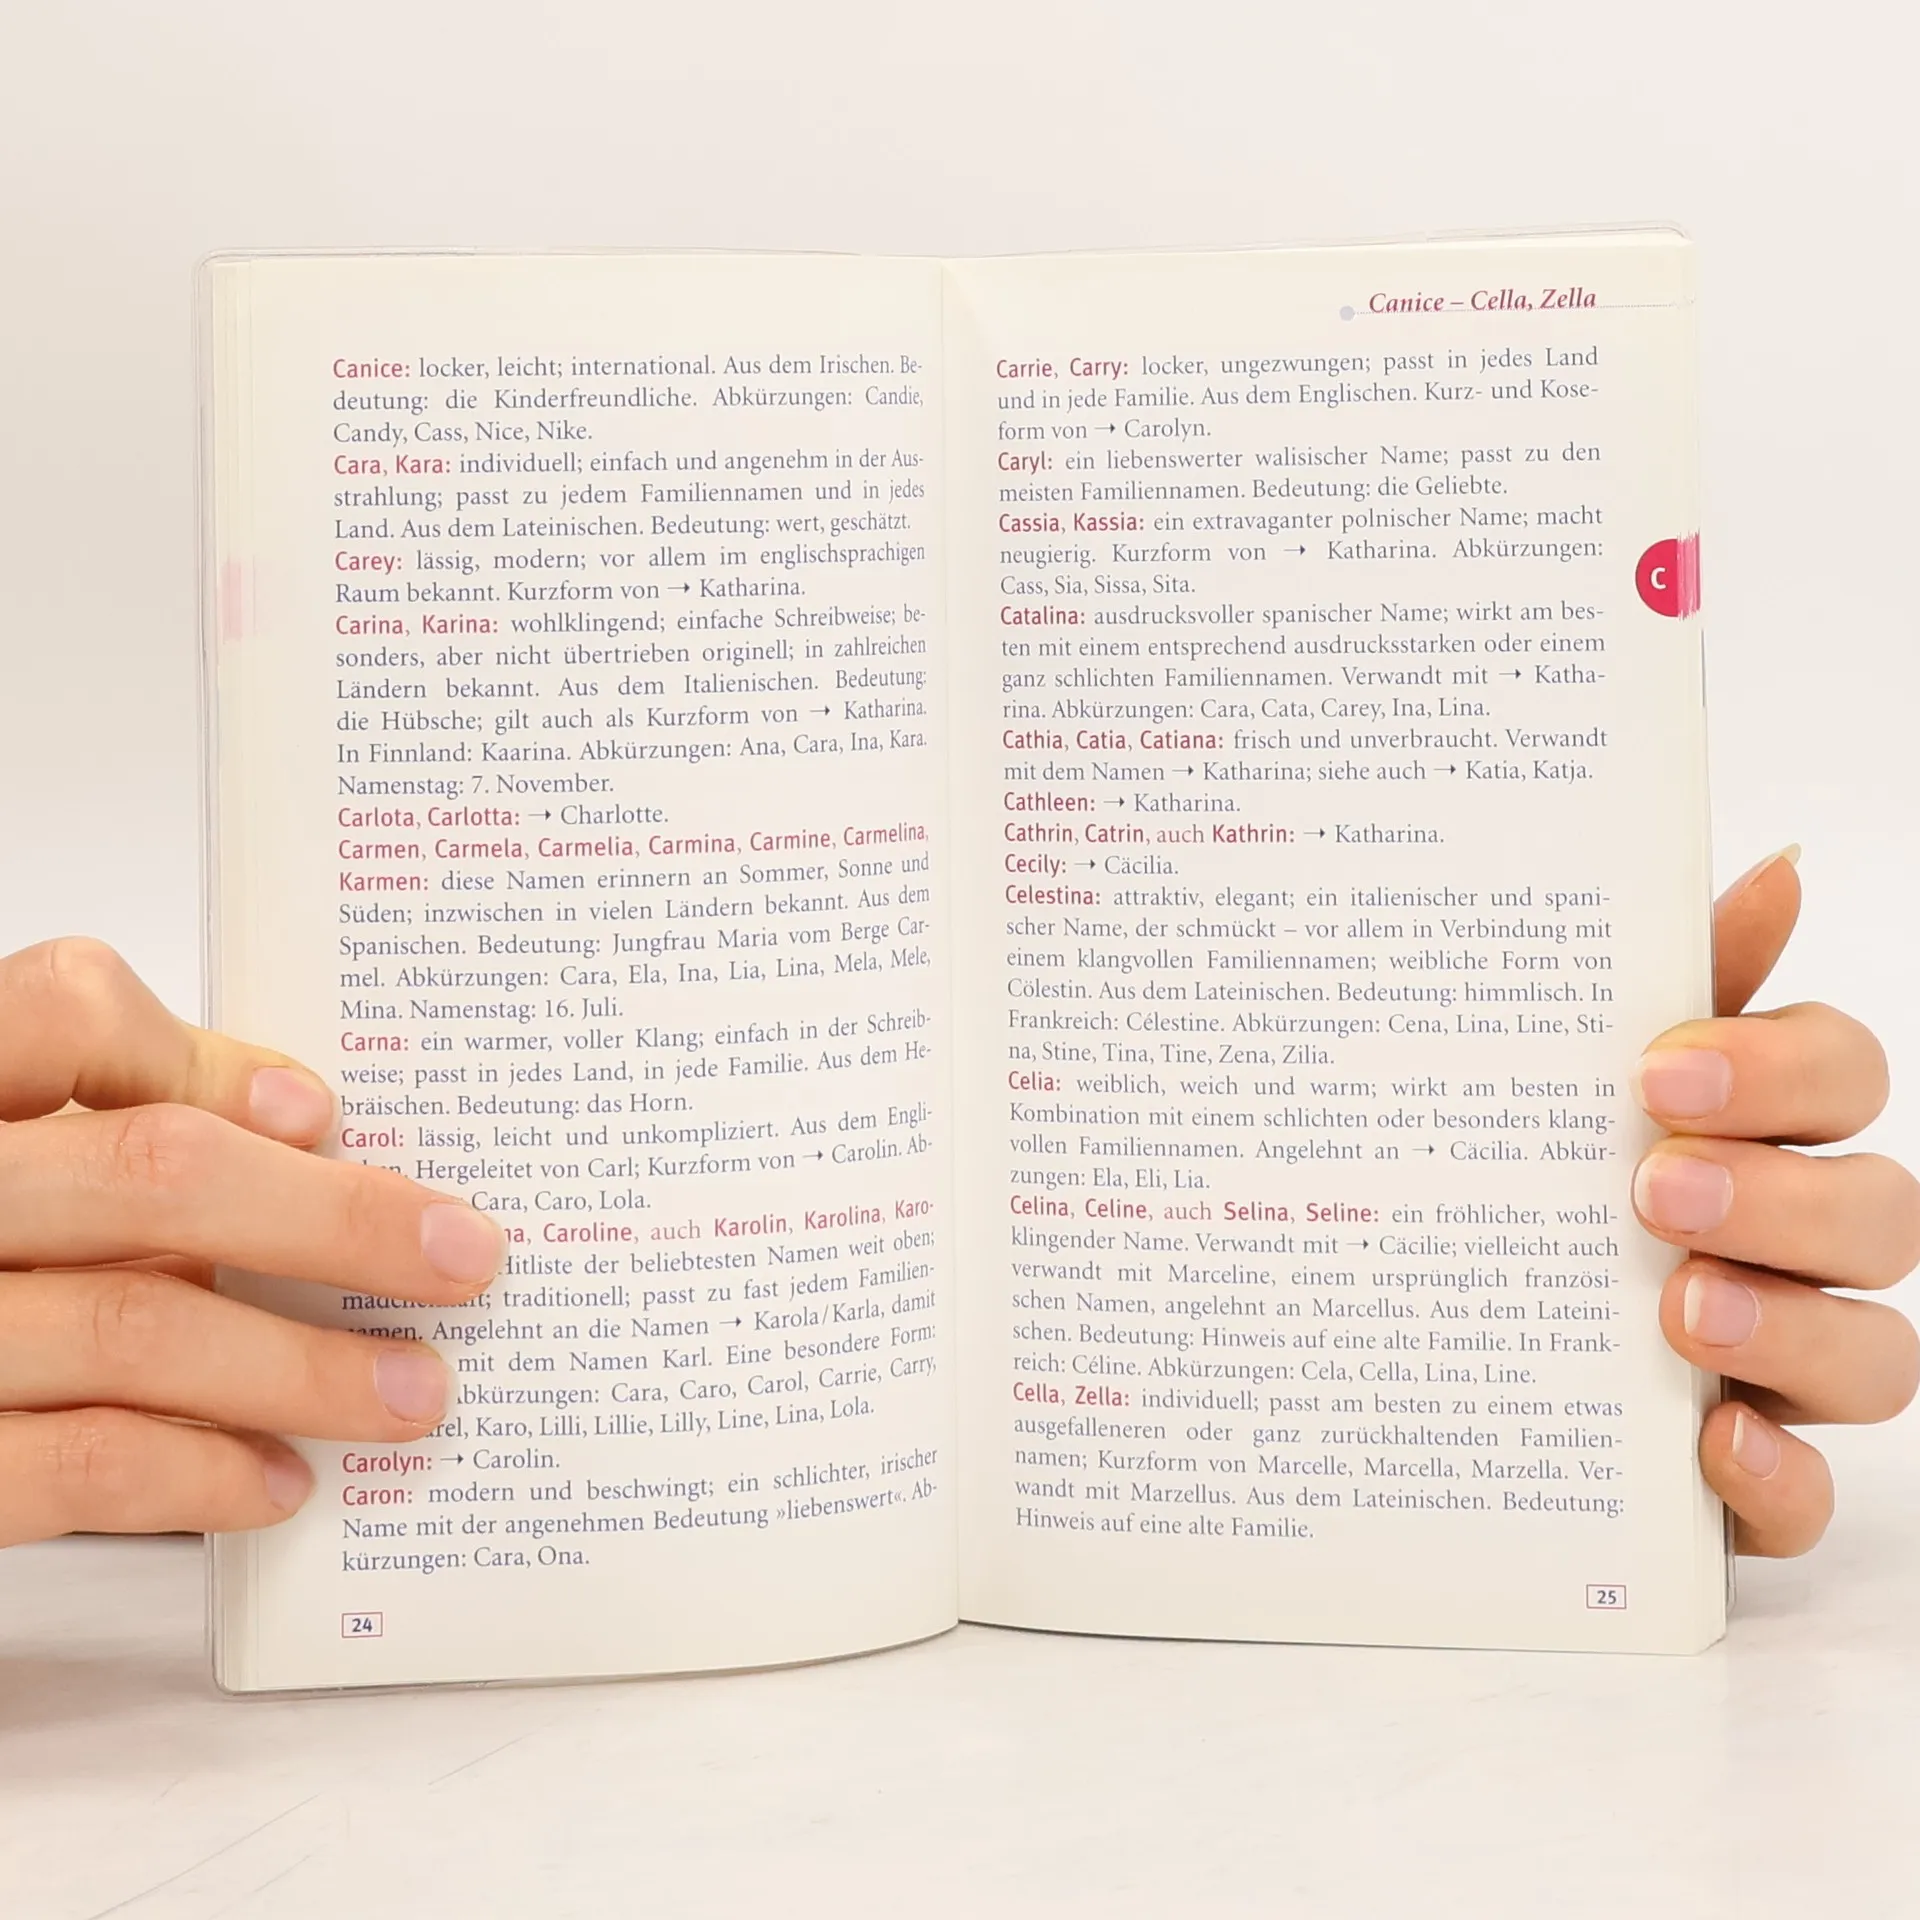 Canice: locker, leicht; international. Aus dem Irischen. Be-
deutung: die Kinderfreundliche. Abkürzungen: Candie,
Candy, Cass, Nice, Nike.
Cara, Kara: individuell; einfach und angenehm in der Aus-
strahlung; passt zu jedem Familiennamen und in jedes
Land. Aus dem Lateinischen. Bedeutung: wert, geschätzt.
Carey: lässig, modern; vor allem im englischsprachigen
Raum bekannt. Kurzform von → Katharina.
Carina, Karina: wohlklingend; einfache Schreibweise; be-
sonders, aber nicht übertrieben originell; in zahlreichen
Ländern bekannt. Aus dem Italienischen. Bedeutung:
die Hübsche; gilt auch als Kurzform von → Katharina.
In Finnland: Kaarina. Abkürzungen: Ana, Cara, Ina, Kara.
Namenstag: 7. November.
Carlota, Carlotta: → Charlotte.
Carmen, Carmela, Carmelia, Carmina, Carmine, Carmelina,
Karmen: diese Namen erinnern an Sommer, Sonne und
Süden; inzwischen in vielen Ländern bekannt. Aus dem
Spanischen. Bedeutung: Jungfrau Maria vom Berge Car-
mel. Abkürzungen: Cara, Ela, Ina, Lia, Lina, Mela, Mele,
Mina. Namenstag: 16. Juli.
Carna: ein warmer, voller Klang; einfach in der Schreib-
weise; passt in jedes Land, in jede Familie. Aus dem He-
bräischen. Bedeutung: das Horn.
Carol: lässig, leicht und unkompliziert. Aus dem Engli-
Hergeleitet von Carl; Kurzform von → Carolin. Ab-
Cara, Caro, Lola.
Caroline, auch Karolin, Karolina, Karo-
Hitliste der beliebtesten Namen weit oben;
traditionell; passt zu fast jedem Familien-
namen. Angelehnt an die Namen → Karola/Karla, damit
mit dem Namen Karl. Eine besondere Form:
Abkürzungen: Cara, Caro, Carol, Carrie, Carry,
Karo, Lilli, Lillie, Lilly, Line, Lina, Lola.
Carolyn: → Carolin.
Caron: modern und beschwingt; ein schlichter, irischer
Name mit der angenehmen Bedeutung »liebenswert«. Ab-
kürzungen: Cara, Ona.
24
Canice – Cella, Zella
Carrie, Carry: locker, ungezwungen; passt in jedes Land
und in jede Familie. Aus dem Englischen. Kurz- und Kose-
form von → Carolyn.
Caryl: ein liebenswerter walisischer Name; passt zu den
meisten Familiennamen. Bedeutung: die Geliebte.
Cassia, Kassia: ein extravaganter polnischer Name; macht
neugierig. Kurzform von → Katharina. Abkürzungen:
Cass, Sia, Sissa, Sita.
Catalina: ausdrucksvoller spanischer Name; wirkt am bes-
ten mit einem entsprechend ausdrucksstarken oder einem
ganz schlichten Familiennamen. Verwandt mit → Katha-
rina. Abkürzungen: Cara, Cata, Carey, Ina, Lina.
Cathia, Catia, Catiana: frisch und unverbraucht. Verwandt
mit dem Namen → Katharina; siehe auch → Katia, Katja.
Cathleen: → Katharina.
Cathrin, Catrin, auch Kathrin: → Katharina.
Cecily: → Cäcilia.
Celestina: attraktiv, elegant; ein italienischer und spani-
scher Name, der schmückt – vor allem in Verbindung mit
einem klangvollen Familiennamen; weibliche Form von
Cölestin. Aus dem Lateinischen. Bedeutung: himmlisch. In
Frankreich: Célestine. Abkürzungen: Cena, Lina, Line, Sti-
na, Stine, Tina, Tine, Zena, Zilia.
Celia: weiblich, weich und warm; wirkt am besten in
Kombination mit einem schlichten oder besonders klang-
vollen Familiennamen. Angelehnt an → Cäcilia. Abkür-
zungen: Ela, Eli, Lia.
Celina, Celine, auch Selina, Seline: ein fröhlicher, wohl-
klingender Name. Verwandt mit → Cäcilie; vielleicht auch
verwandt mit Marceline, einem ursprünglich französi-
schen Namen, angelehnt an Marcellus. Aus dem Lateini-
schen. Bedeutung: Hinweis auf eine alte Familie. In Frank-
reich: Céline. Abkürzungen: Cela, Cella, Lina, Line.
Cella, Zella: individuell; passt am besten zu einem etwas
ausgefalleneren oder ganz zurückhaltenden Familien-
namen; Kurzform von Marcelle, Marcella, Marzella. Ver-
wandt mit Marzellus. Aus dem Lateinischen. Bedeutung:
Hinweis auf eine alte Familie.
C
25